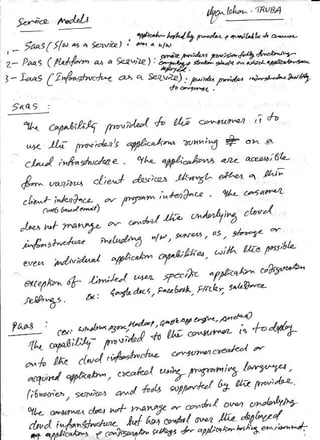 Service Models
1, - SaaS (S/w as a Service) : application hosted by provider & available to consumer over a n/w
2 - PaaS (Platform as a Service) :
3 - IaaS (Infrastructure as a Service) : provider provides infrastructure facility to consumer.
SaaS :
The capability provided to the consumer is to
use the provider's applications running on a
cloud infrastructure. The applications are accessible
from various client devices through either a thin
client interface or program interface. The consumer
(web based email)
does not manage or control the underlying cloud
infrastructure including n/w, servers, OS, storage or
even individual application capabilities, with the possible
exception of limited user specific application configuration
settings. Ex: Google docs, Facebook, Flickr, Salesforce
PaaS :
(ex: windows Azure, Hadoop, Google app Engine,
The capability provided to the consumer is to deploy
onto the cloud infrastructure consumer created or
acquired application, created using programming languages,
libraries, services and tools supported by the provider.
The consumer does not manage or control over underlying
cloud infrastructure but has control over the deployed
applications & configuration settings for application hosting environment.